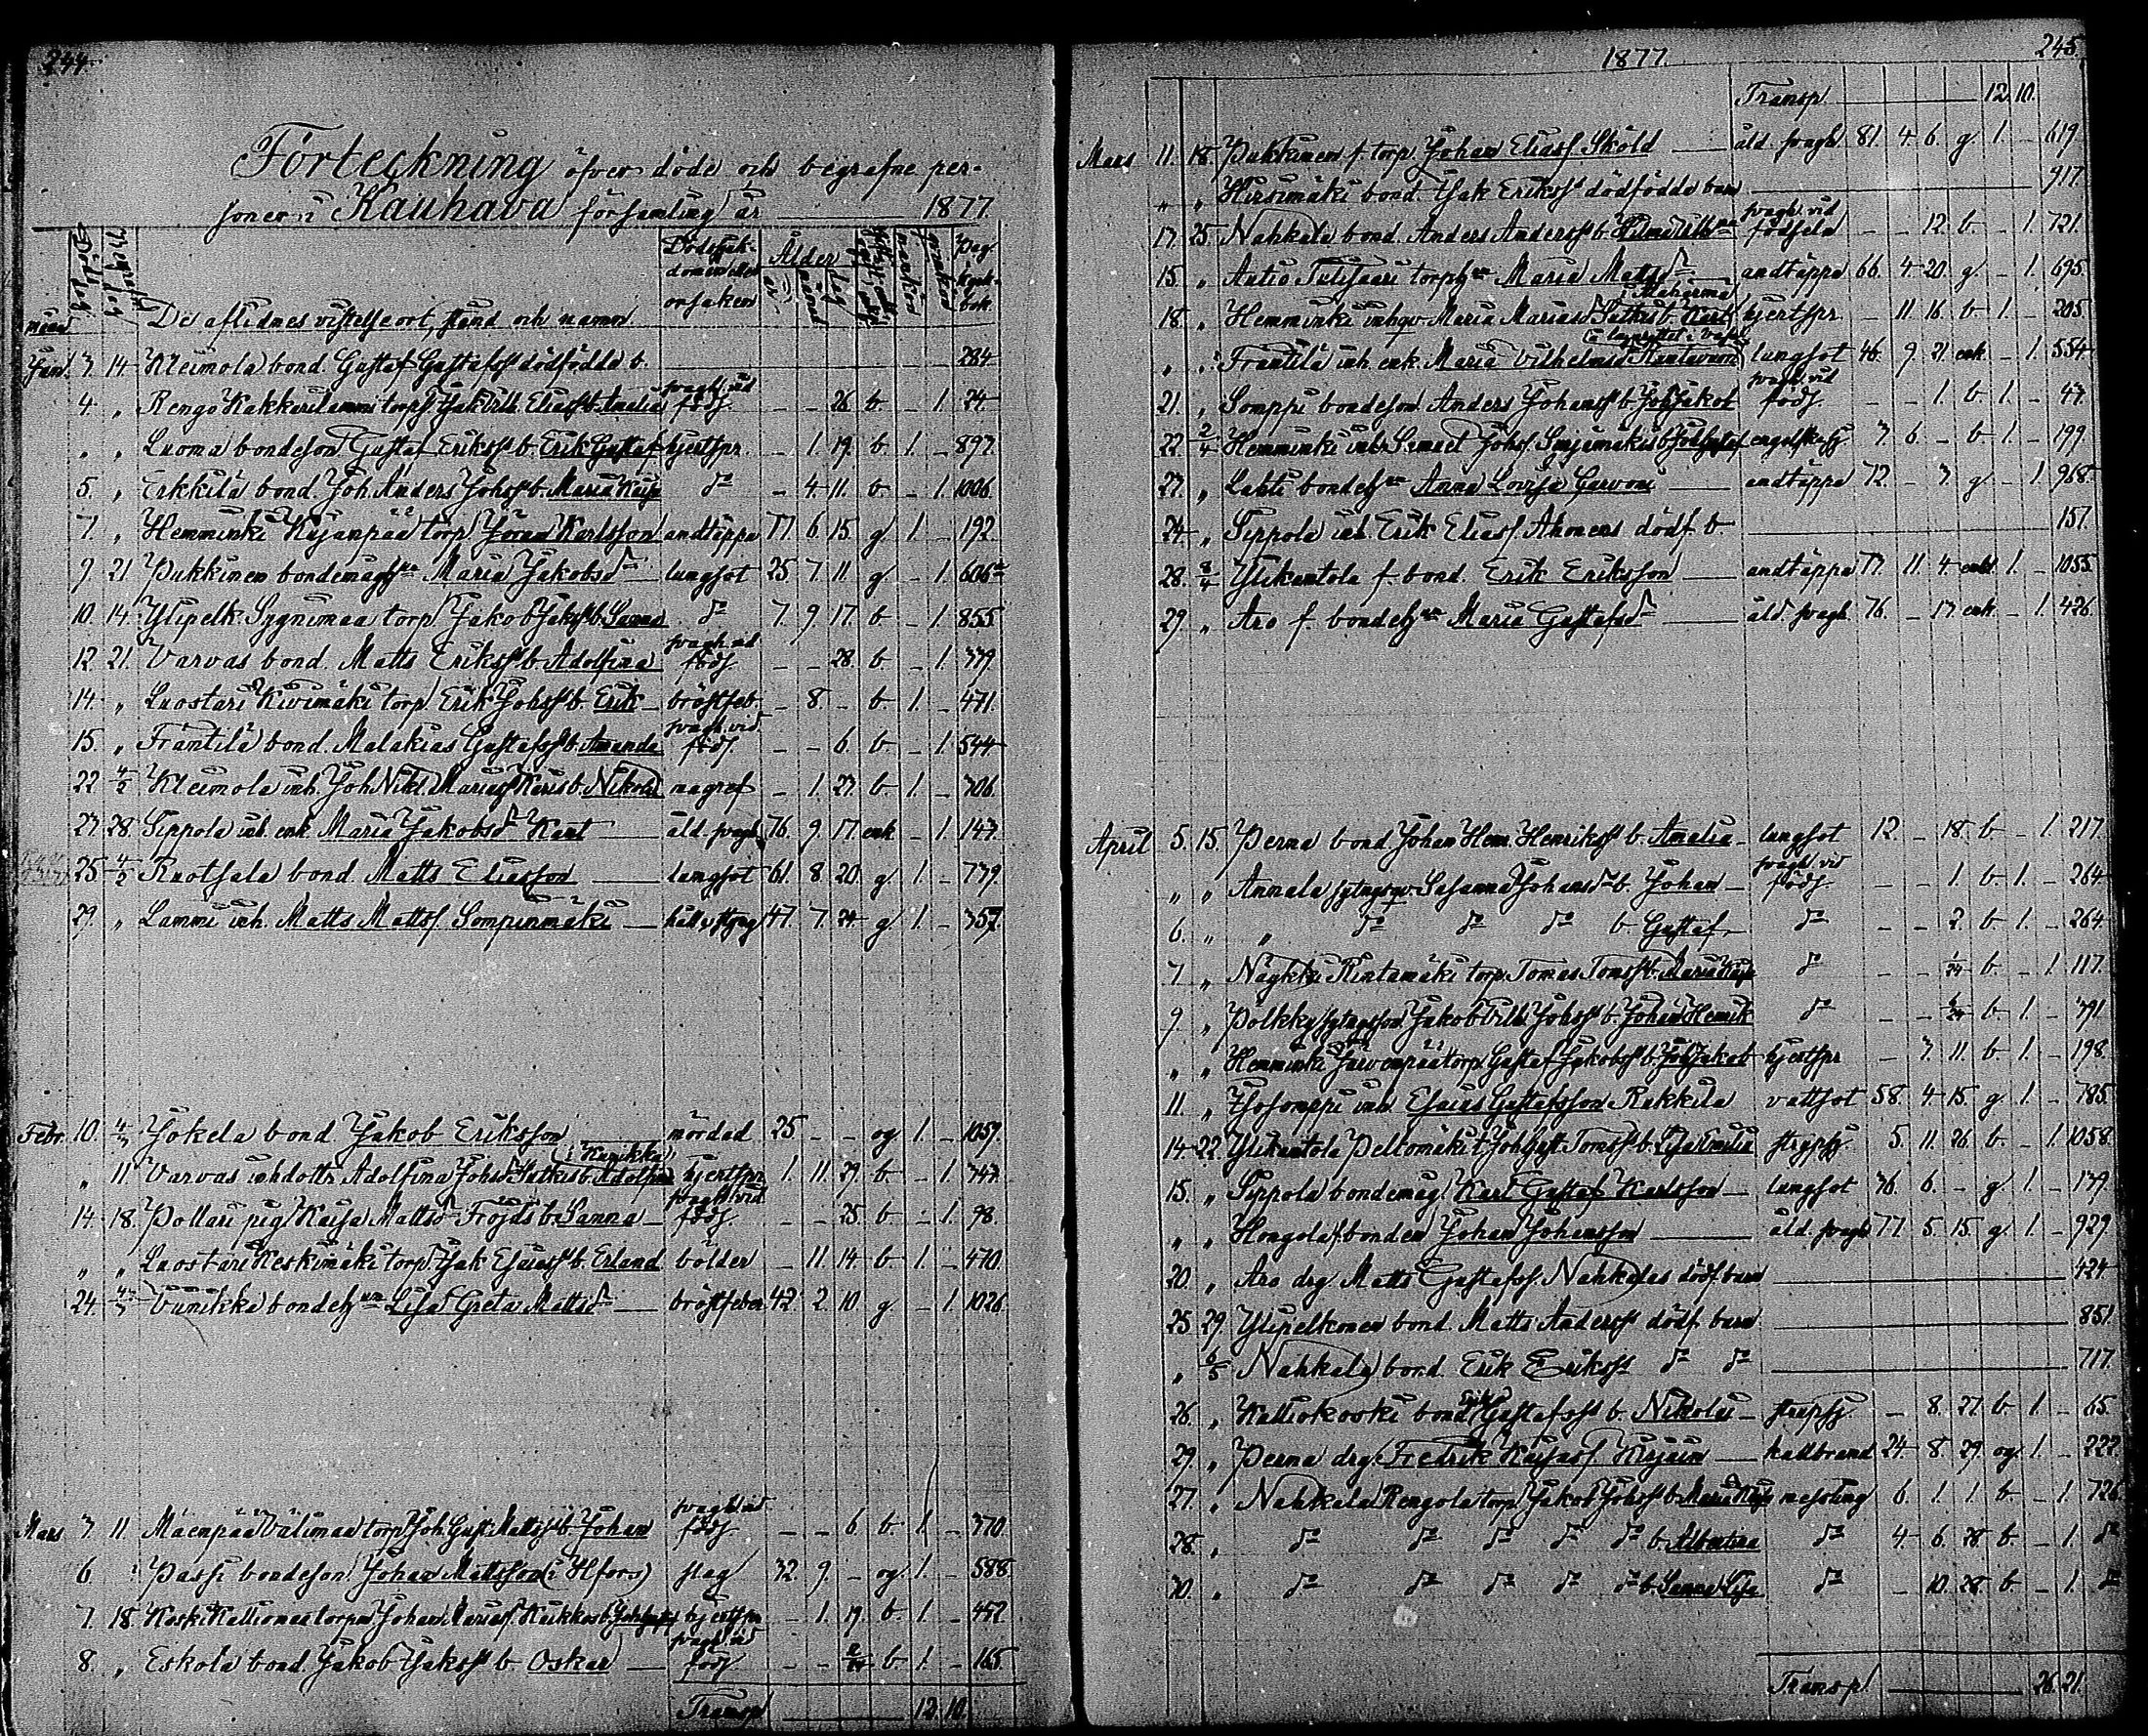 244.
Förteckning öfver döde och begrafne per-
soner i Kauhava församling år 1877.
månad
Död dag
De aflidnes vistelseort, stånd och namn.
Dödssjuk-
domen eller
orsaken
Ålder
år månad dag
mankön
Pag.
Jan. 3. 14. Kleimola bond. Gustaf Gustafss dödfödde b. 284
4. „ Rengo torp. Isak Vilh. Eliass b. Amalia svagh. vid föds. - - 26 b. - 1. 24.
„ „ Luoma bondeson Gustaf Erikss b. Erik Gustaf hjertspr. - 1. 19. b. 1. - 897.
5. „ Erkkilä bond. Joh. Anders Johss b. Maria Kajsa do - 4. 11. b. - 1. 1006.
7. „ Hemminki Kujanpää torp. Karlsson andtäppa 77. 6. 15. g. 1. - 192.
9. 21. Pukkinen bondemågh Maria Jakobsd lungsot 25. 7. 11. g. - 1. 606
10. 14. Ylipelk. torp. Jakob b. Sanna do 7. 9. 17. b. - 1. 855.
12. 21. Varvas bond. Matts Erikss b. Adolfina svagh. vid föds. - - 28. b. - 1. 379.
14. „ Luostari Kivimäki torp. Erik Johss b. Erik bröstfeb. - 8. - b. 1. - 471.
15. „ Fräntilä bond. Malakias Gustafss b. Amanda svagh. vid föds. - - 6. b. - 1. 544.
22. 4/2 Kleimola inh. Joh. Nikl. b. Nikolai magref - 1. 27. b. 1. - 306.
27. 28. Sippola inh. enk. Maria Jakobsd Kant åld. svagh. 76. 9. 17. enk. - 1. 147.
25. 4/2 Ruotsala bond. Matts Eliasson lungsot 61. 8. 20. g. 1. - 739.
29. „ Lammi inh. Matts Mattss. Sompinmäki håll o. styng 47. 7. 24. g. 1. - 357.
Febr. 10. 4/3 Jokela bond. Jakob Eriksson mördad 25. - - og. 1. - 1057.
(i Kurikka)
„ 11. Varvas inhdottr. Adolfina Johsd b. Adolfina hjertspr. 1. 11. 29. b. - 1. 347.
14. 18. Pollari pig. Kaisa Mattsd Fröjds b. Sanna svagh. vid föds. - - 25. b. - 1. 98.
„ „ Luostari Keskimäki torp. Isak Esaiass b. Erland bölder - 11. 14. b. 1. - 470.
24. 4/3 Vuinikka bondeh Lisa Greta Mattsd bröstfeber 42. 2. 10. g. - 1. 1026.
Mars 3. 11. Mäenpää Välimaa torp. Joh. Gust. Mattss b. Johan svagh. vid föds. - - 6. b. 1. - 370.
6. „ Passi bondeson Johan Mattsson (i Hfors) slag 32. 9. - og. 1. - 588.
7. 18. Koski Kalliomaa Johan b. hjertspr. - 1. 19. b. 1. - 452.
8. „ Eskola bond. Jakob b. Oskar svagh. vid föds. - - b. 1. - 165.
Transp. 12. 10.
1877. 245.
Transp. 12. 10.
Mars 11. 18. Pukkinen f. torp. Johan Eliass. Sköld åld. svagh. 81. 4. 6. g. 1. - 619.
„ „ Hirsimäki bond. Isak Erikss dödfödda barn 917.
17. 25. Nahkala bond. Anders Anderss b. svagh. vid födseln - - 12. b. - 1. 721.
15. „ Autio Tulisaari torph Maria Mattsd andtäppa 66. 4. 20. g. - 1. 695.
18. „ Hemminki inhqv. Maria b. Karl hjertspr. - 11. 16. b. 1. - 205.
„ „ Fräntilä inh. enk. Maria Vilhelmsd lungsot 46. 9. 21. enk. - 1. 554.
21. „ Somppi bondeson Anders Johanss b. Joh. Jakob svagh. vid föds. - - 1. b. 1. - 47.
22. 2/4 Hemminki inh. Samuel Johss. engelska sj. 7. 6. - b. 1. - 199.
27. „ Lahti bondeh Anna Lovisa andtäppa 72. - 7. g. - 1. 968.
24. „ Sippola inh. Erik Eliass. Ahonens dödf. b. 157.
28. 8/4 Ylikantola f. bond. Erik Eriksson andtäppa 77. 11. 4. enkl. 1. - 1055.
29. „ Aro f. bondeh Maria Gustafsd åld. svagh. 76. - 17. enk. - 1. 426.
April 5. 15. Perna bond. Johan Hem. Henrikss b. Amalia lungsot 12. - 18. b. - 1. 217.
„ „ Annala Susanna Johansd b. Johan svagh. vid föds. - - 1. b. 1. - 264.
6. „ „ do do do b. Gustaf do - - 2. b. 1. - 264.
7. „ Rintamäki torp. Tomas Tomss b. Maria do - - 1/24 b. - 1. 117.
9. „ Polkky Jakob Vilh. Johss b. Johan Henrik do - - b. 1. - 791.
„ „ Hemminki Järvenpää torp. Gustaf Jakobss b. Joh. Jakob hjertspr. - 7. 11. b. 1. - 198.
11. „ Isosomppi inh. Esaias Gustafsson Rakkila vattsot 58. 4. 15. g. 1. - 785.
14. 22. Ylikantola Peltomäki t. Joh. Gust. Tomss b. Lisa Emilia strypsj. 5. 11. 26. b. - 1. 1058.
15. „ Sippola bondemåg. Karl Gustaf Karlsson lungsot 36. 6. - g. 1. - 139.
„ „ Hongola f. bonden Johan Johansson åld. svagh. 77. 5. 15. g. 1. - 929.
20. „ Aro drg. Matts Gustafss. Nahkalas dödf. barn 424.
25. 29. Ylipelkonen bond. Matts Anderss dödf. barn 851.
„ 6/5 Nahkala bond. Erik Erikss do do 717.
26. „ Kalliokoski bond. Gustafss b. Nikolai strupsj. - 8. 27. b. 1. - 65.
29. „ Perna drg. Fredrik Kaisas. kallbrand 24. 8. 29. og. 1. - 222.
27. „ Nahkala Rengola torp. Jakob Johss b. Maria messling 6. 1. 1. b. - 1. 726.
28. „ do do do do do b. Albertina do 4. 6. 28. b. - 1. do
30. „ do do do do do b. Sanna Lisa do - 10. 28. b. - 1. do
Transp. 26. 21.